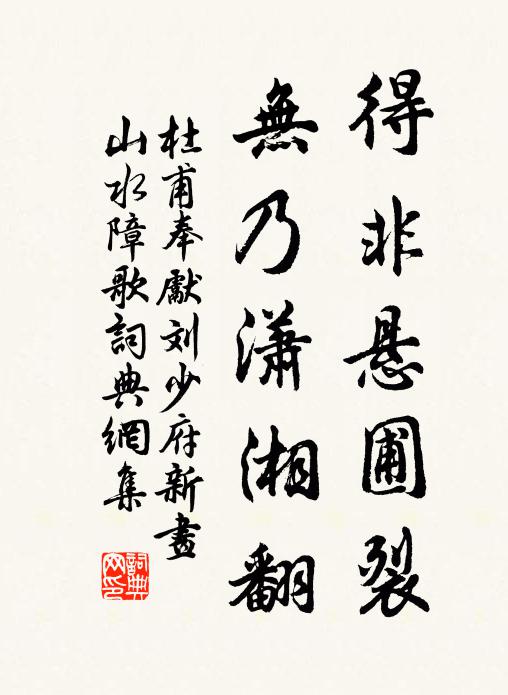 得非悬圃裂
無乃瀟湘翻
杜甫奉獻刘少府新畫
山水障歌詞典網集
詞典
网印